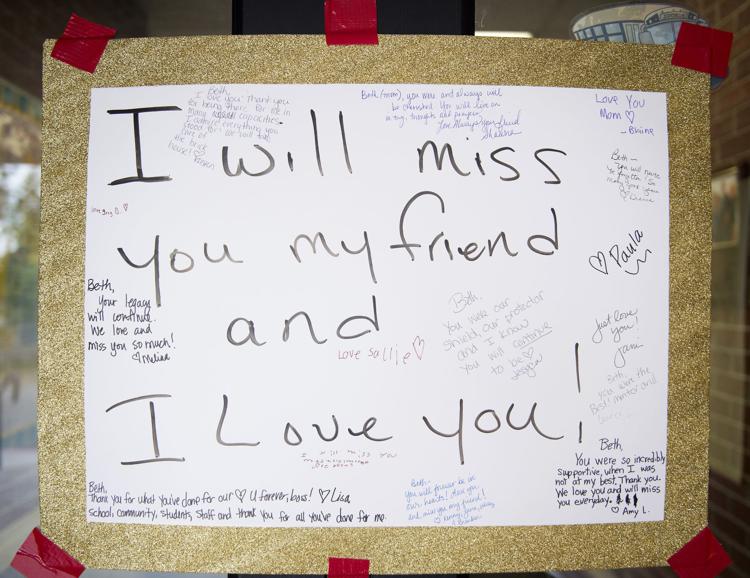 I will miss
you my friend
and
I Love you!
Beth,
I love you! Thank you
for being there for me in
many capacities.
everything you
stood for. we will take
the brick
house!
Beth (mom), you were and always will
be cherished. You will live on
in my thoughts and prayers.
Love Always your friend
Love You
Mom ♡
- Blaine
Beth -
You will never
be forgotten! So
♡ Paula
Beth,
your legacy
will continue.
We love and
miss you so much!
♡ Melisa
Love Sallie ♡
Beth,
You were our
shield our protector
and I know
you will continue
to be ♡
Jessica
Just love
you!
Jami
Beth,
you were the
Best mentor and
I will miss you
Beth,
Thank you for what you've done for our ♡ U forever, boss! ♡ Lisa
school, community, students, staff and thank you for all you've done for me.
Beth-
you will forever be in
our hearts! Love you
and miss you my friend!
Beth,
You were so incredibly
supportive, when I was
not at my best. Thank you.
We love you and will miss
you everyday.
♡ Amy L.